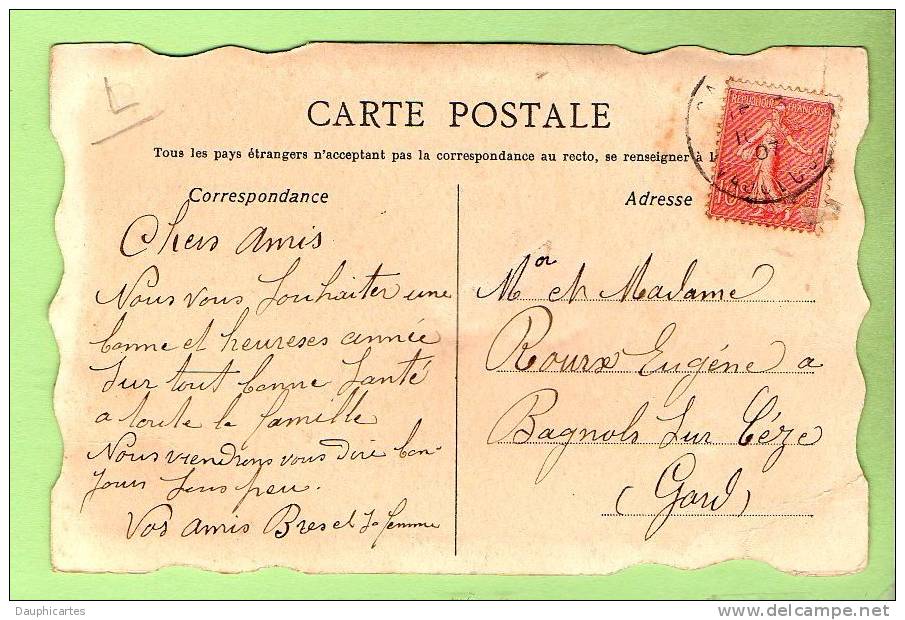 L
CARTE POSTALE
Tous les pays étrangers n'acceptant pas la correspondance au recto, se renseigner à l
Correspondance
Adresse
REPUBLIQUE FRANÇAISE
10
POSTES
VAUCLUSE
07
Chers Amis
Nous vous souhaiter une
bonne et heureses année
sur tout bonne santé
a toute la famille
Nous viendrons vous dire bon-
jour sous peu.
Vos amis Bres et sa femme
Mon et Madame
Rourx Eugéne a
Bagnols sur Céze
(Gard)
Dauphicartes
delcampe.net